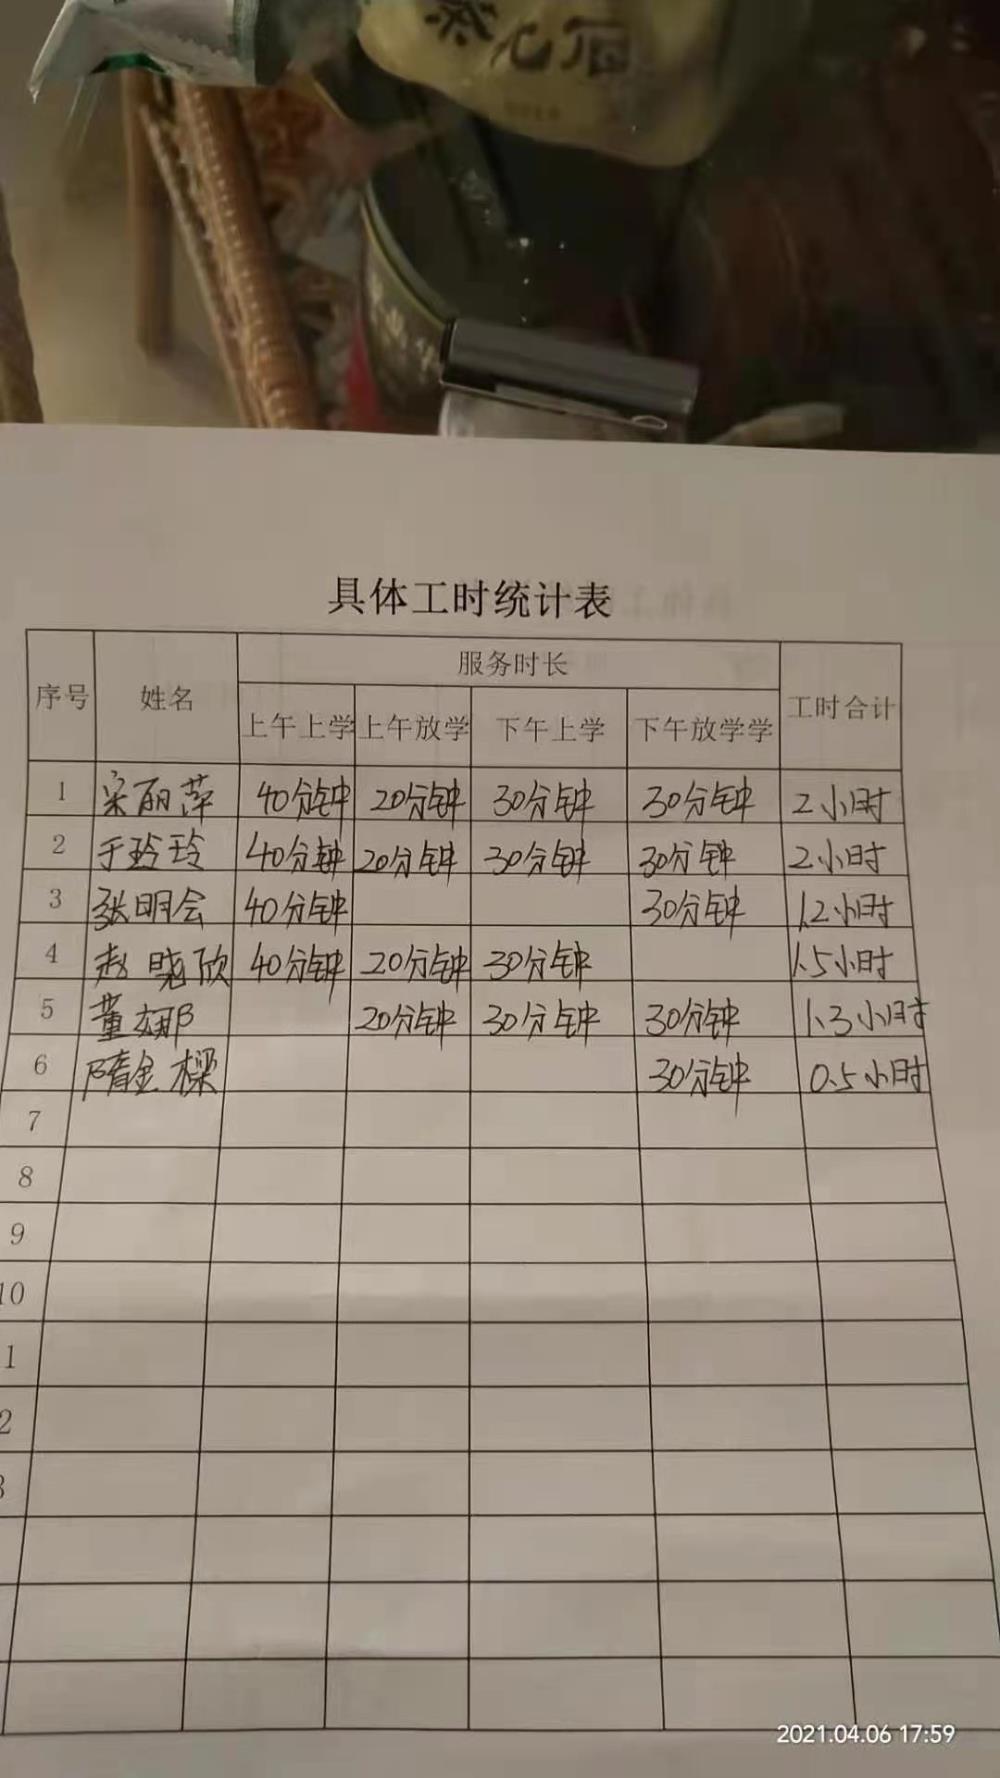 点心
具体工时统计表
序号 姓名 服务时长 工时合计
上午上学 上午放学 下午上学 下午放学学
1 宋丽萍 40分钟 20分钟 30分钟 30分钟 2小时
2 于玲玲 40分钟 20分钟 30分钟 30分钟 2小时
3 张明会 40分钟 30分钟 1.2小时
4 赵晓欣 40分钟 20分钟 30分钟 1.5小时
5 董娜 20分钟 30分钟 30分钟 1.3小时
6 隋金樑 30分钟 0.5小时
7
8
9
10
1
2
3
2021.04.06 17:59